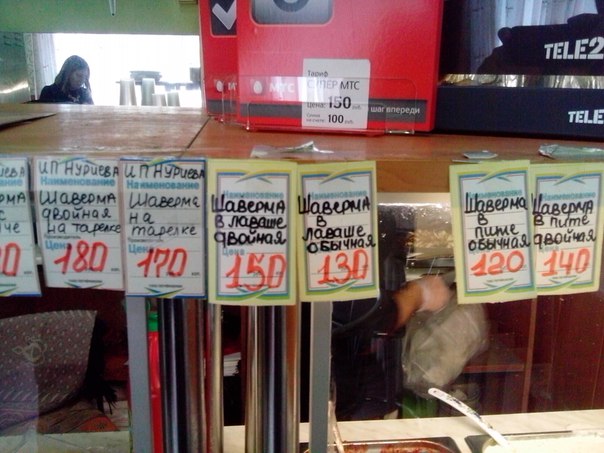 Тариф
СУПЕР МТС
Цена: 150 руб.
Сумма на счете: 100 руб.
МТС
шаг впереди
TELE2
TELE2
ИП Нуриева
Наименование
Шаверма
двойная
на тарелке
Цена
180
ИП Нуриева
Наименование
Шаверма
на
тарелке
Цена
170
Наименование
Шаверма
в лаваше
двойная
Цена
150
Наименование
Шаверма
в
лаваше
обычная
130
Наименование
Шаверма
в
пите
обычная
120
Наименование
Шаверма
в пите
двойная
140